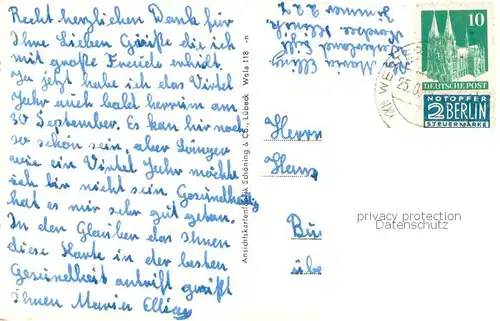 Recht herzlichen Dank für
Ihre Lieben Grüße die ich
mit große Freude erhielt.
Ja jetzt habe ich das Virtel
Jahr auch bald herrum am
30 September. Es kan hir noch
so schön sein, aber Länger
wie ein Virtel Jahr möchte
ich hir nicht sein. Gesundheitlig
hat es mir sehr gut getan.
In den Glauben das Ihnen
diese Karte in der besten
Gesundheit antrift grüßt
Ihnen Marie Elling
Ansichtskartenfabrik Schöning & Co., Lübeck Wola 118 -n
Marie Elling
Zimmer 222
WESTER
25.
10
DEUTSCHE POST
NOTOPFER
2 BERLIN
STEUERMARKE
Herrn
Hans
Bü
übe
privacy protection
Datenschutz